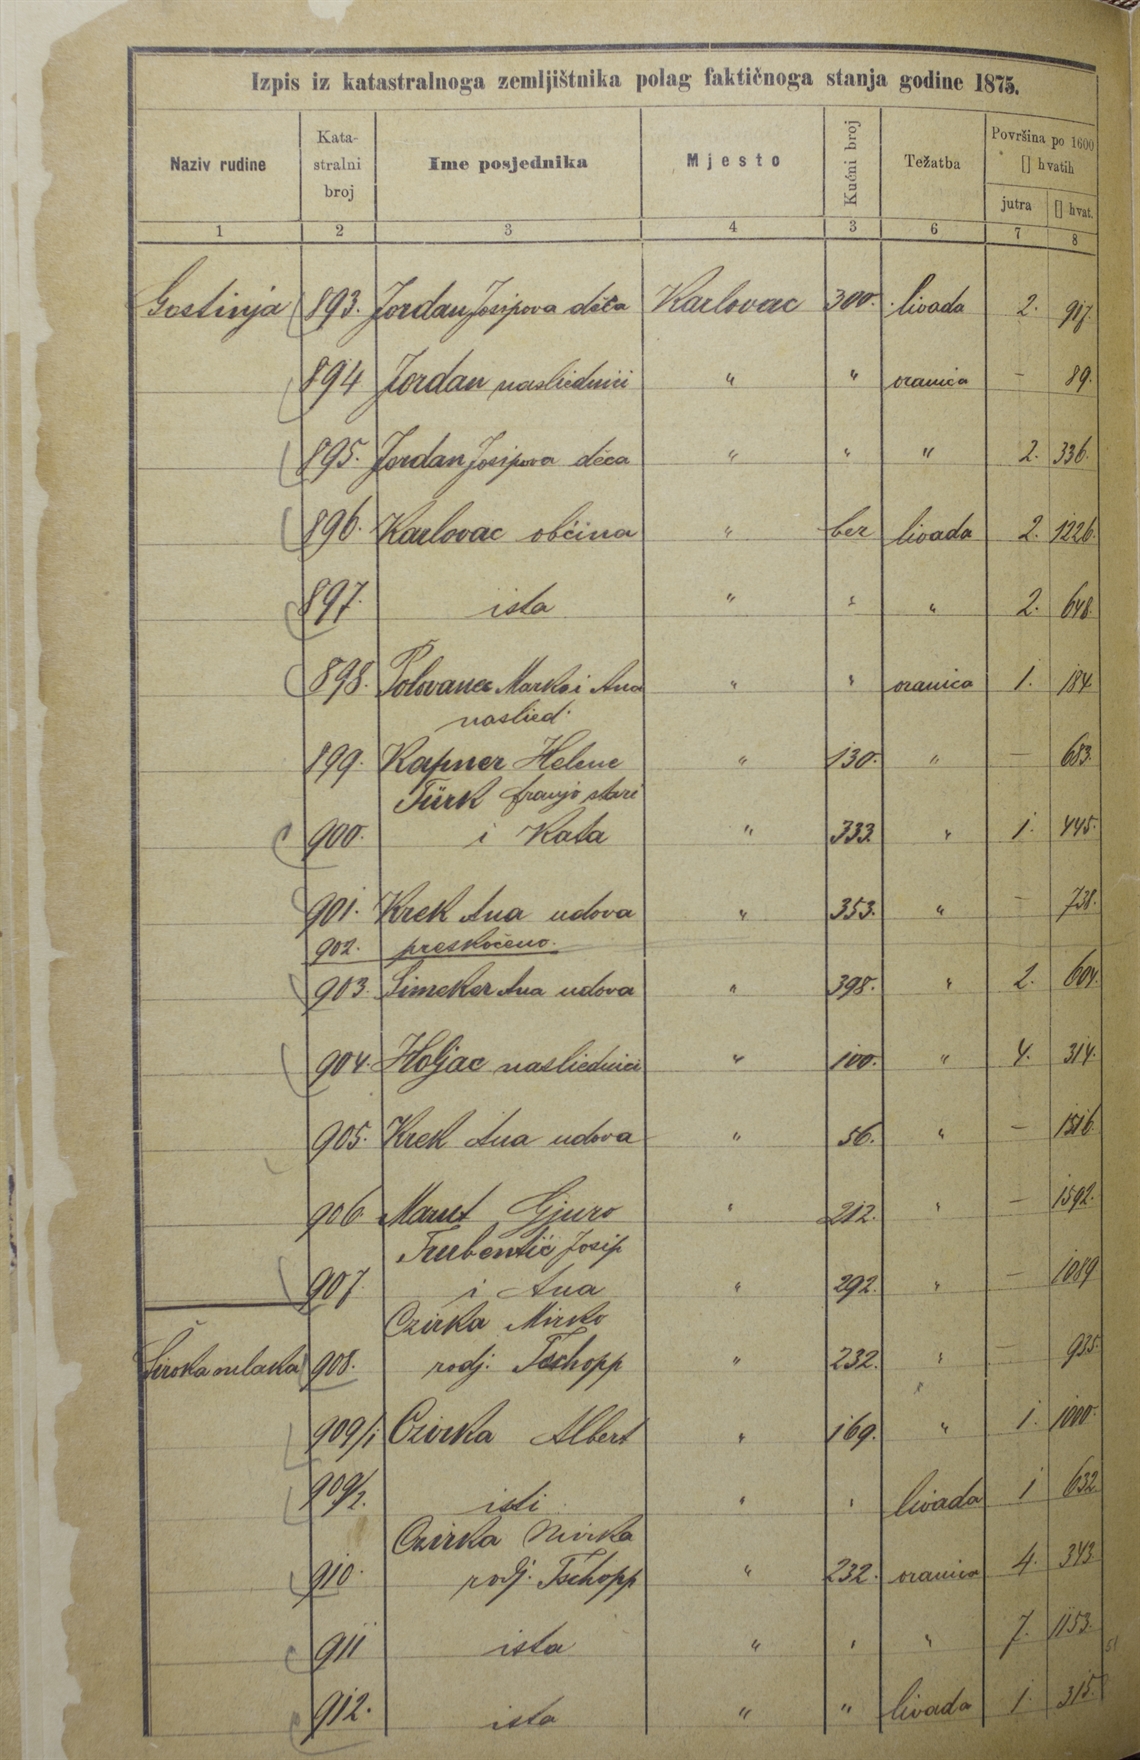 Izpis iz katastralnoga zemljištnika polag faktičnoga stanja godine 1875.
Naziv rudine Kata-stralni broj Ime posjednika Mjesto Kućni broj Težatba Površina po 1600 □ hvatih
jutra □ hvat.
1 2 3 4 3 6 7 8
Gostinja 893. Jordan Josipova dĕca Karlovac 300. livada 2. 917
894 Jordan nasliednici " " oranica - 89.
895. Jordan Josipova dĕca " " " 2. 336.
896. Karlovac občina " bez livada 2. 1226.
897. ista " " " 2. 648.
898. Polovanec Marko i Ana " " oranica 1. 184.
naslied.
899. Kapner Helene " 130. " - 683.
Türk franjo stari
900. i Kata " 333. " 1. 445.
901. Krek Ana udova " 353. " - 738.
902. preskočeno.
903. Simeker Ana udova " 398. " 2. 604.
904. Holjac nasliednici " 100. " 4. 314.
905. Krek Ana udova " 56. " - 1516.
906 Gjuro " 212. " - 1592.
Trubentić Josip
907. i Ana " 292. " - 1089
Czirka Mirko
Široka mlaka 908. rodj. Tschopp " 232. " - 935.
909/1 Czirka Albert " 169. " 1. 1000.
909/2. isti " " livada 1 632
Czirka
910. rodj. Tschopp " 232. oranica 4. 343
911 ista " " " 7. 1153.
912. ista " " livada 1. 315.